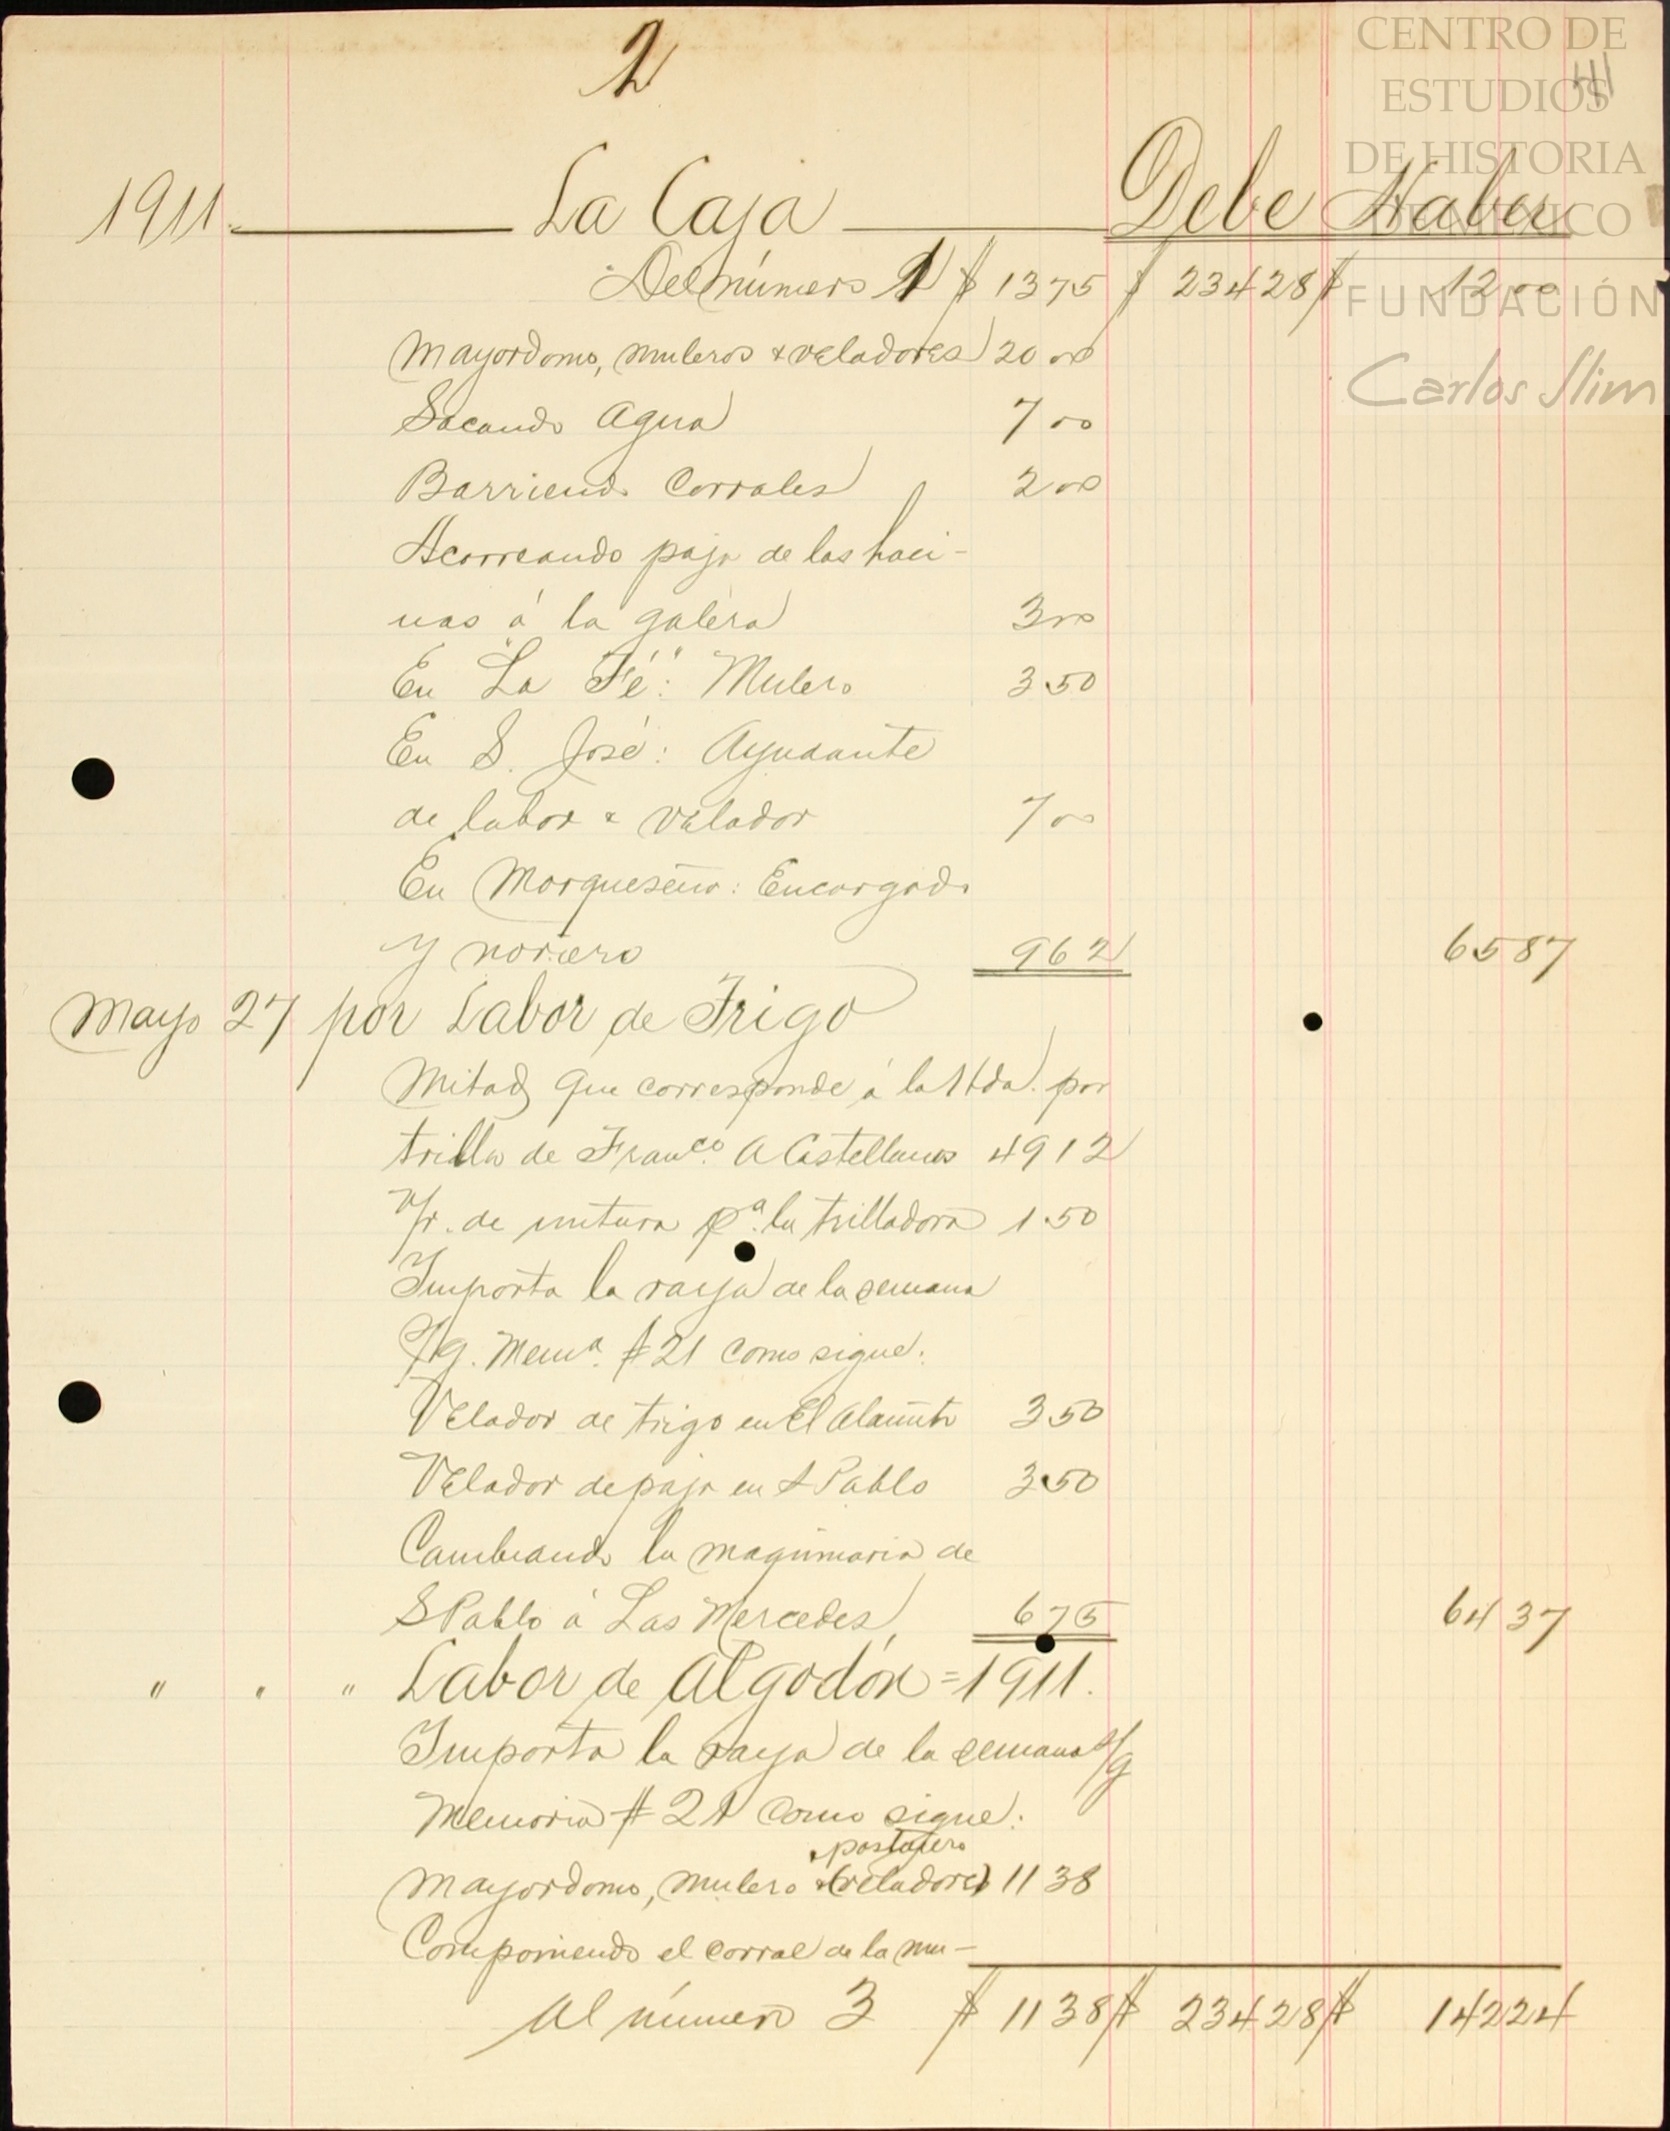 2
CENTRO DE
ESTUDIOS
DE HISTORIA
DE MÉXICO
FUNDACIÓN
Carlos Slim
41
1911. La Caja Debe Haber
Del número 1 $ 1375 $ 23428 $ 1200
Mayordomo, muleros & veladores 20 00
Sacando Agua 7 00
Barriendo Corrales 2 00
Acarreando paja de las haci-
nas á la galera 3 00
En "La Fé": Mulero 3 50
En S. José: Ayudante
de labor & velador 7 00
En Marqueseña: Encargado
y noriero 9 62 65 87
Mayo 27 por Labor de Trigo
Mitad que corresponde á la Hda. por
trilla de Franco. A Castellanos 49 12
V/r. de untura pa. la trilladora 1.50
Importa la raya de la semana
s/g. Mema. # 21 como sigue:
Velador de trigo en El Alamito 3 50
Velador de paja en S Pablo 3 50
Cambiando la maquinaria de
S Pablo á Las Mercedes 6 75 64 37
" " " Labor de Algodón = 1911.
Importa la raya de la semana s/g
Memoria # 21 como sigue:
pastojero
Mayordomo, mulero & (veladores) 11 38
Componiendo el corral de la mu-
Al número 3 $ 11 38 $ 234 28 $ 142 24